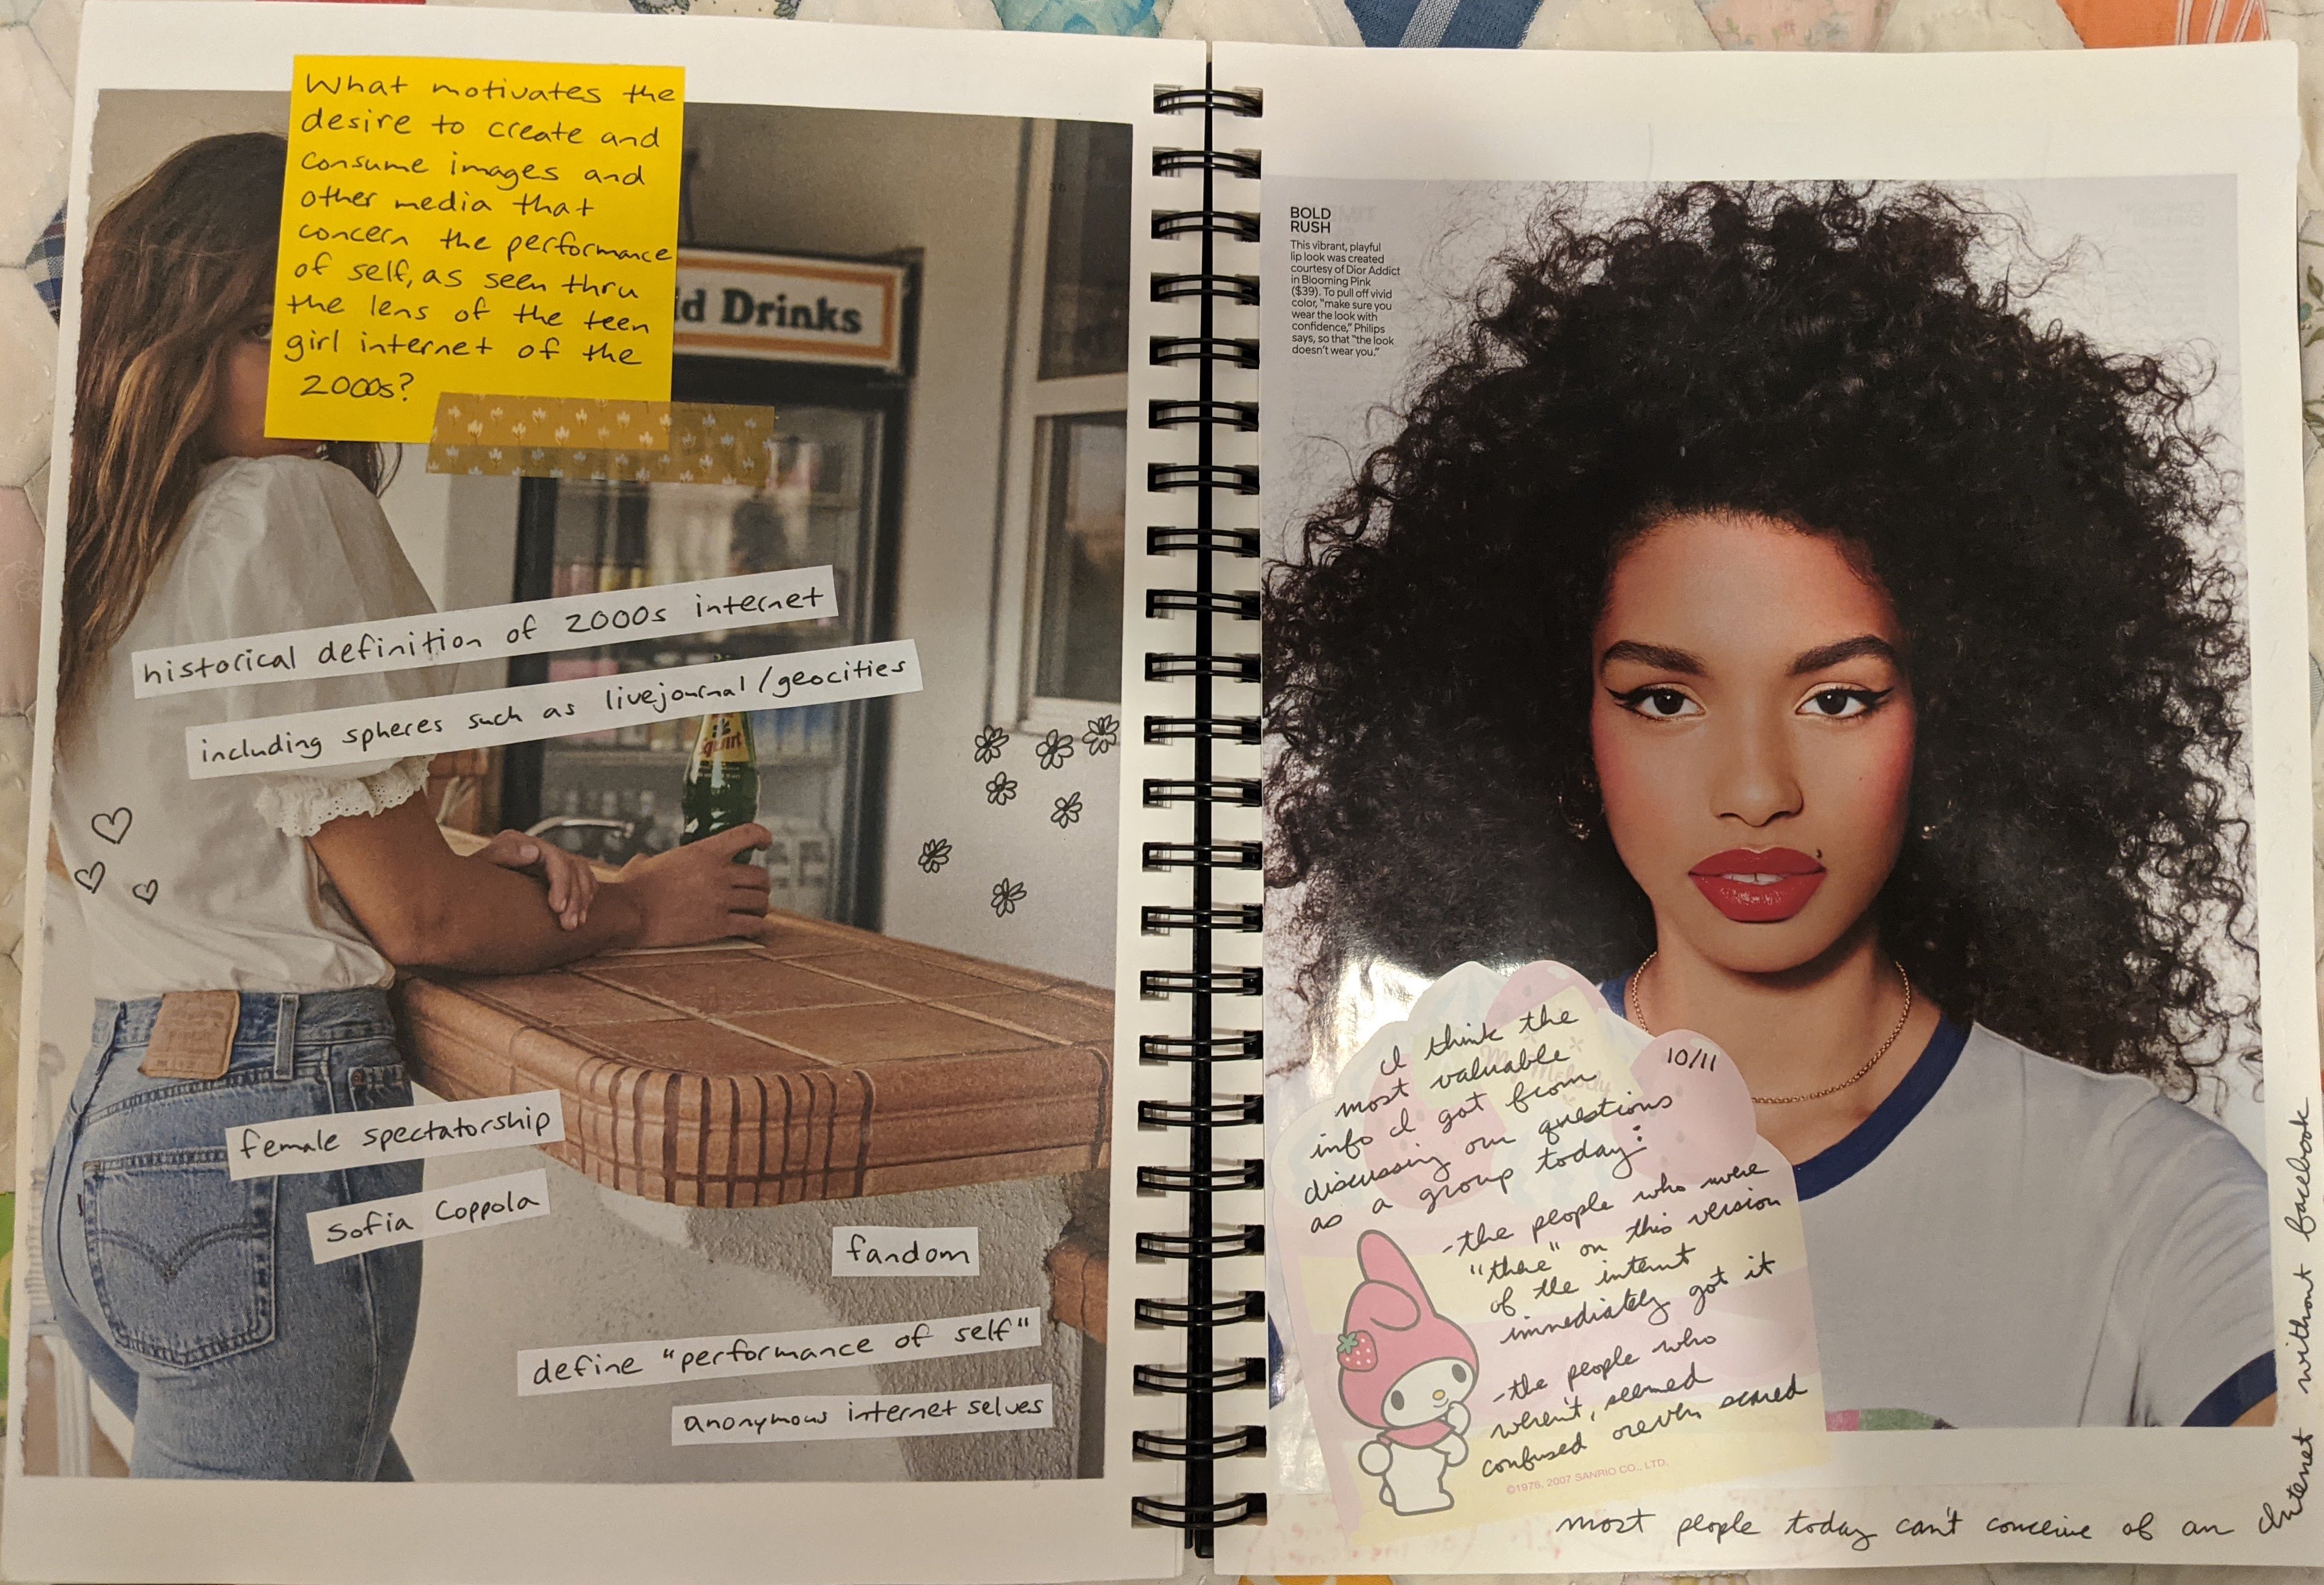 What motivates the
desire to create and
consume images and
other media that
concern the performance
of self, as seen thru
the lens of the teen
girl internet of the
2000s?
d Drinks
historical definition of 2000s internet
including spheres such as livejournal/geocities
Squirt
female spectatorship
Sofia Coppola
fandom
define "performance of self"
anonymous internet selves
BOLD
RUSH
This vibrant, playful
lip look was created
courtesy of Dior Addict
in Blooming Pink
($39). To pull off vivid
color, "make sure you
wear the look with
confidence," Philips
says, so that "the look
doesn't wear you."
10/11
I think the
most valuable
info I got from
discussing our questions
as a group today:
-the people who were
"there" on this version
of the internet
immediately got it
-the people who
weren't, seemed
confused or even scared
My Melody
©1976, 2007 SANRIO CO., LTD.
most people today can't conceive of an
Internet without facebook